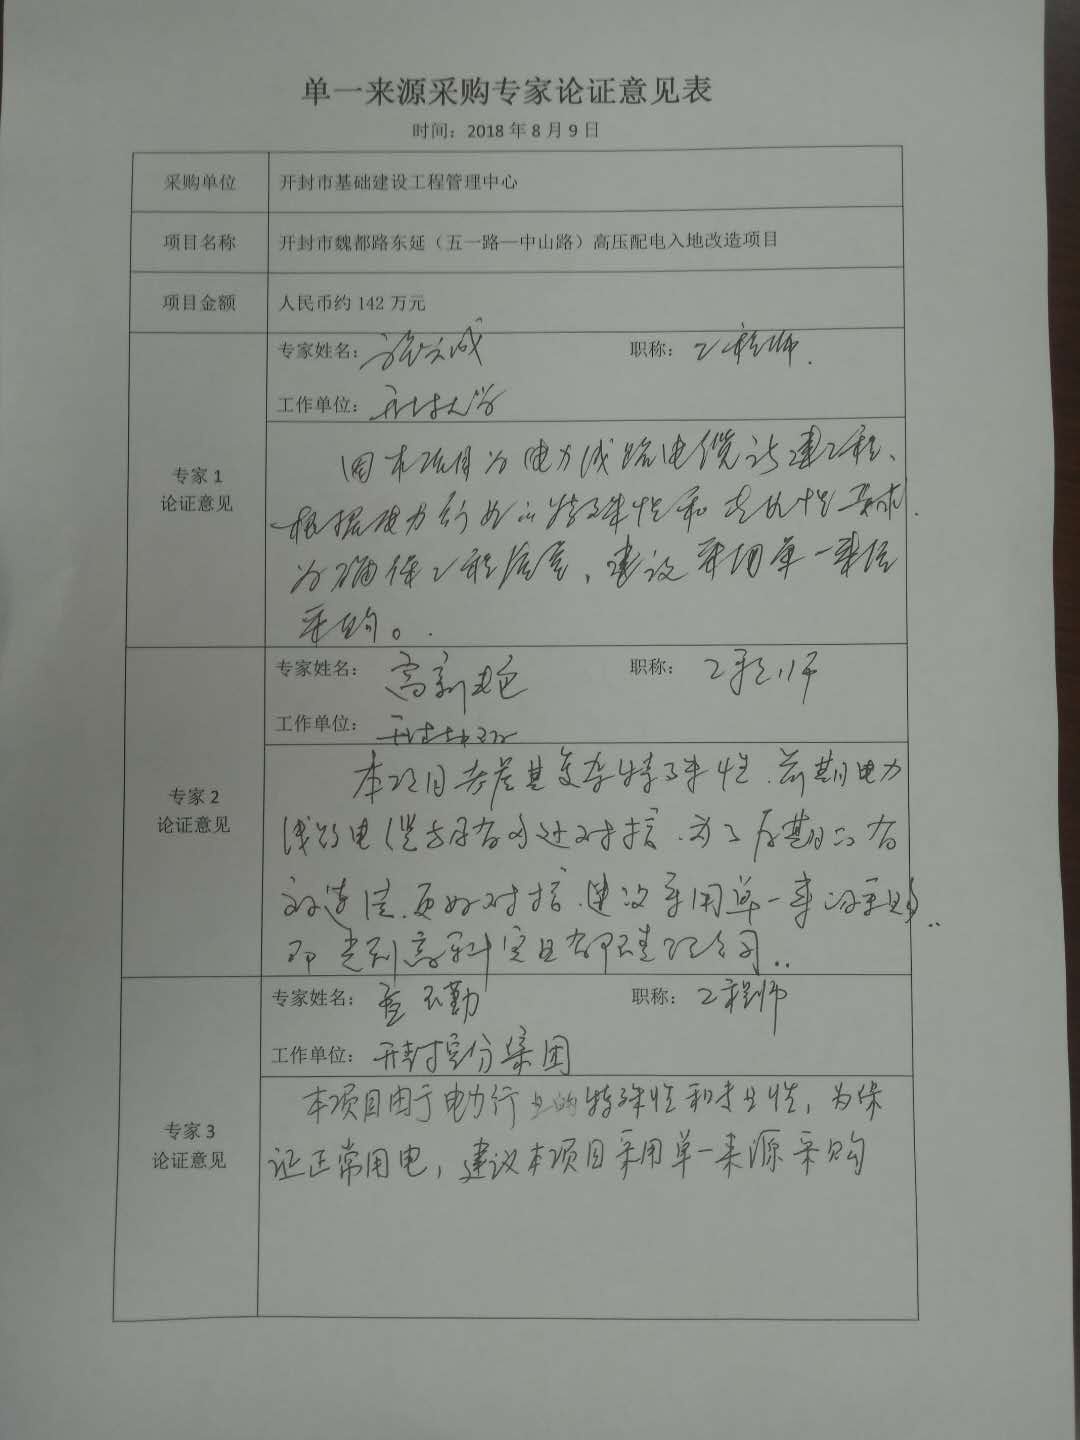 单一来源采购专家论证意见表
时间：2018年8月9日
采购单位
开封市基础建设工程管理中心
项目名称
开封市魏都路东延（五一路—中山路）高压配电入地改造项目
项目金额
人民币约142万元
专家1
论证意见
专家姓名：
职称：工程师
工作单位：开封大学
因本项目为电力线路电缆改建工程、
根据电力行业的特殊性和专业性要求
为确保工程质量，建议采用单一来源
采购。
专家2
论证意见
专家姓名：高新
职称：工程师
工作单位：开封
本项目考虑其复杂特殊性、前期电力
线路电缆方面有过对接、为了后期的有
效、更好对接、建议采用单一来源采购
专家3
论证意见
专家姓名：
职称：工程师
工作单位：开封空分集团
本项目由于电力行业的特殊性和专业性，为保
证正常用电，建议本项目采用单一来源采购